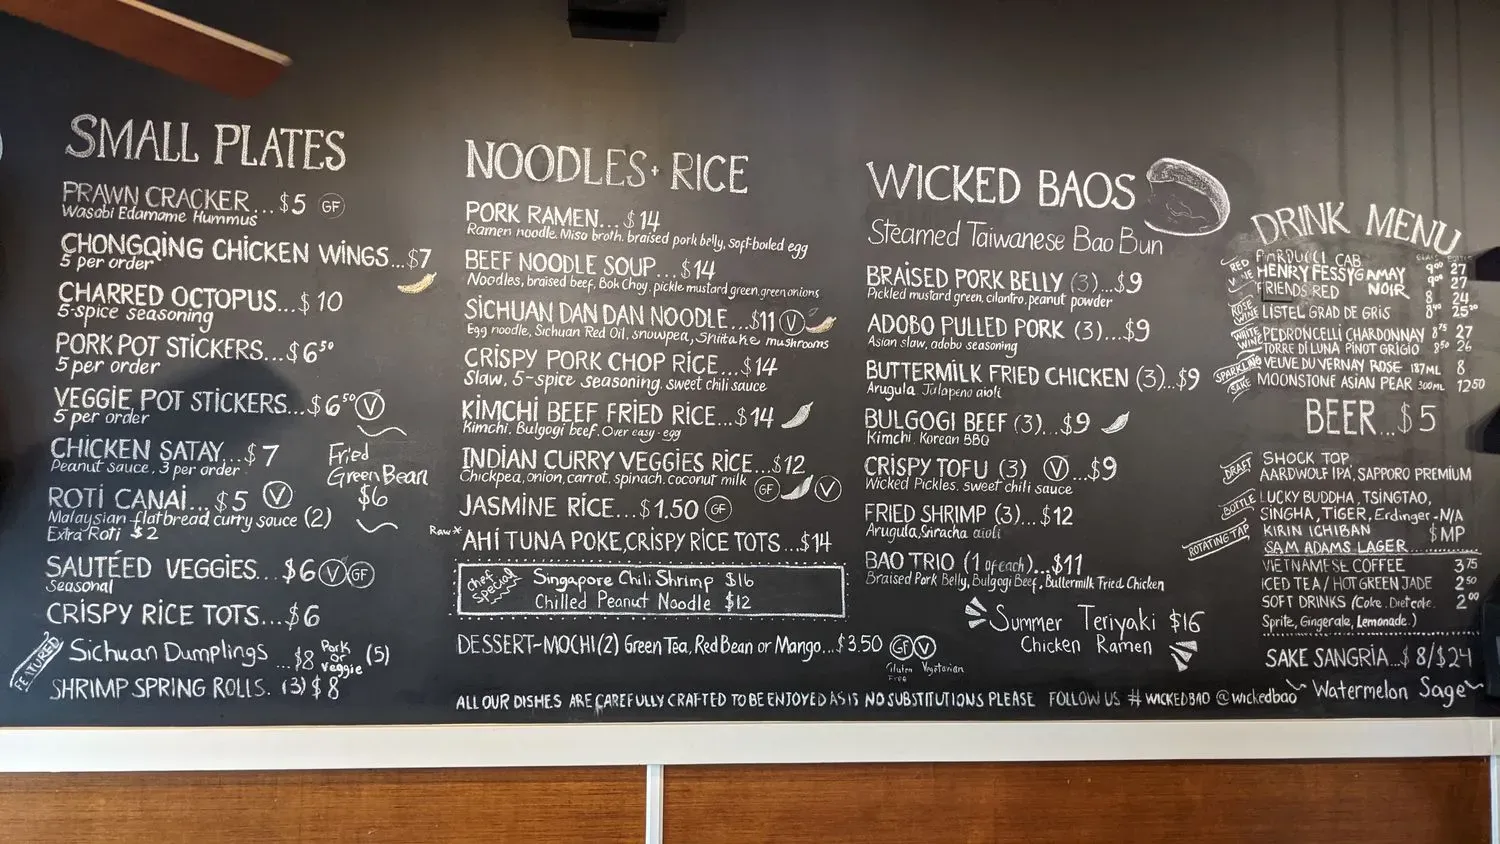 SMALL PLATES
PRAWN CRACKER...$5 GF
Wasabi Edamame Hummus
CHONGQING CHICKEN WINGS...$7
5 per order
CHARRED OCTOPUS...$10
5-spice seasoning
PORK POT STICKERS...$6⁵⁰
5 per order
VEGGIE POT STICKERS...$6⁵⁰ V
5 per order
CHICKEN SATAY...$7
Peanut sauce, 3 per order
Fried
Green Bean
$6
ROTI CANAI...$5 V
Malaysian flatbread, curry sauce (2)
Extra Roti $2
SAUTÉED VEGGIES...$6 V GF
Seasonal
CRISPY RICE TOTS...$6
FEATURED
Sichuan Dumplings ...$8 Pork or Veggie (5)
SHRIMP SPRING ROLLS. (3) $8
NOODLES + RICE
PORK RAMEN...$14
Ramen noodle. Miso broth. braised pork belly, soft-boiled egg
BEEF NOODLE SOUP...$14
Noodles, braised beef, Bok Choy, pickle mustard green, green onions
SICHUAN DAN DAN NOODLE...$11 V
Egg noodle, Sichuan Red Oil, snowpea, Shiitake mushrooms
CRISPY PORK CHOP RICE...$14
Slaw, 5-spice seasoning, sweet chili sauce
KIMCHI BEEF FRIED RICE...$14
Kimchi, Bulgogi beef, Over easy-egg
INDIAN CURRY VEGGIES RICE...$12
Chickpea, onion, carrot, spinach, coconut milk GF V
JASMINE RICE...$1.50 GF
Raw* AHI TUNA POKE, CRISPY RICE TOTS...$14
Chef Special
Singapore Chili Shrimp $16
Chilled Peanut Noodle $12
DESSERT-MOCHI (2) Green Tea, Red Bean or Mango...$3.50 GF V
Gluten Free Vegetarian
WICKED BAOS
Steamed Taiwanese Bao Bun
BRAISED PORK BELLY (3)...$9
Pickled mustard green, cilantro, peanut powder
ADOBO PULLED PORK (3)...$9
Asian slaw, adobu seasoning
BUTTERMILK FRIED CHICKEN (3)...$9
Arugula, Jalapeno aioli
BULGOGI BEEF (3)...$9
Kimchi, Korean BBQ
CRISPY TOFU (3) V...$9
Wicked Pickles, sweet chili sauce
FRIED SHRIMP (3)...$12
Arugula, Siracha aioli
BAO TRIO (1 of each)...$11
Braised Pork Belly, Bulgogi Beef, Buttermilk Fried Chicken
Summer Teriyaki $16
Chicken Ramen
ALL OUR DISHES ARE CAREFULLY CRAFTED TO BE ENJOYED AS IS NO SUBSTITUTIONS PLEASE FOLLOW US # WICKEDBAO @wickedbao
DRINK MENU
RED WINE
CAB 9⁰⁰ 27
HENRY FESSY GAMAY 9⁰⁰ 27
FRIENDS RED NOIR 8 24
ROSE WINE LISTEL GRAD DE GRIS 8⁴⁰ 25²⁰
WHITE WINE PEDRONCELLI CHARDONNAY 8⁷⁵ 27
TORRE DI LUNA PINOT GRIGIO 8⁵⁰ 26
SPARKLING VEUVE DU VERNAY ROSE 187ML 8
SAKE MOONSTONE ASIAN PEAR 300ML 12⁵⁰
BEER...$5
DRAFT
SHOCK TOP
AARDWOLF IPA, SAPPORO PREMIUM
BOTTLE
LUCKY BUDDHA, TSINGTAO,
SINGHA, TIGER, Erdinger-N/A
ROTATING TAP
KIRIN ICHIBAN $MP
SAM ADAMS LAGER
VIETNAMESE COFFEE 3⁷⁵
ICED TEA / HOT GREEN JADE 2⁵⁰
SOFT DRINKS (Coke, Diet coke, 2⁰⁰
Sprite, Gingerale, Lemonade.)
SAKE SANGRIA...$8/$24
Watermelon Sage